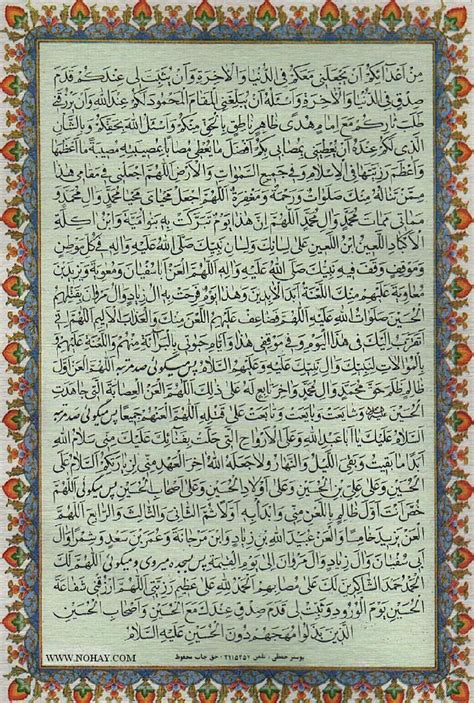 مِنْ أَعْدَائِكُمْ أَنْ يَجْعَلَنِي مَعَكُمْ فِي الدُّنْيَا وَالْآخِرَةِ وَأَنْ يُثَبِّتَ لِي عِنْدَكُمْ قَدَمَ
صِدْقٍ فِي الدُّنْيَا وَالْآخِرَةِ وَأَسْئَلُهُ أَنْ يُبَلِّغَنِي الْمَقَامَ الْمَحْمُودَ لَكُمْ عِنْدَ اللهِ وَأَنْ يَرْزُقَنِي
طَلَبَ ثَارِكُمْ مَعَ إِمَامِ هُدًى ظَاهِرٍ نَاطِقٍ بِالْحَقِّ مِنْكُمْ وَأَسْئَلُ اللهَ بِحَقِّكُمْ وَبِالشَّأْنِ
الَّذِي لَكُمْ عِنْدَهُ أَنْ يُعْطِيَنِي بِمُصَابِي بِكُمْ أَفْضَلَ مَا يُعْطِي مُصَابًا بِمُصِيبَتِهِ مُصِيبَةً مَا أَعْظَمَهَا
وَأَعْظَمَ رَزِيَّتَهَا فِي الْإِسْلَامِ وَفِي جَمِيعِ السَّمَوَاتِ وَالْأَرْضِ اَللّٰهُمَّ اجْعَلْنِي فِي مَقَامِي هٰذَا
مِمَّنْ تَنَالُهُ مِنْكَ صَلَوَاتٌ وَرَحْمَةٌ وَمَغْفِرَةٌ اَللّٰهُمَّ اجْعَلْ مَحْيَايَ مَحْيَا مُحَمَّدٍ وَآلِ مُحَمَّدٍ وَ
مَمَاتِي مَمَاتَ مُحَمَّدٍ وَآلِ مُحَمَّدٍ اَللّٰهُمَّ إِنَّ هٰذَا يَوْمٌ تَبَرَّكَتْ بِهِ بَنُو أُمَيَّةَ وَابْنُ آكِلَةِ
الْأَكْبَادِ اللَّعِينُ ابْنُ اللَّعِينِ عَلَى لِسَانِكَ وَلِسَانِ نَبِيِّكَ صَلَّى اللهُ عَلَيْهِ وَآلِهِ فِي كُلِّ مَوْطِنٍ
وَمَوْقِفٍ وَقَفَ فِيهِ نَبِيُّكَ صَلَّى اللهُ عَلَيْهِ وَآلِهِ اَللّٰهُمَّ الْعَنْ أَبَا سُفْيَانَ وَمُعٰوِيَةَ وَيَزِيدَ بْنَ
مُعَاوِيَةَ عَلَيْهِمْ مِنْكَ اللَّعْنَةُ أَبَدَ الْآبِدِينَ وَهٰذَا يَوْمٌ فَرِحَتْ بِهِ آلُ زِيَادٍ وَآلُ مَرْوَانَ بِقَتْلِهِمُ
الْحُسَيْنَ صَلَوَاتُ اللهِ عَلَيْهِ اَللّٰهُمَّ فَضَاعِفْ عَلَيْهِمُ اللَّعْنَ مِنْكَ وَالْعَذَابَ الْأَلِيمَ اَللّٰهُمَّ إِنِّي
أَتَقَرَّبُ إِلَيْكَ فِي هٰذَا الْيَوْمِ وَفِي مَوْقِفِي هٰذَا وَأَيَّامِ حَيٰوتِي بِالْبَرَائَةِ مِنْهُمْ وَاللَّعْنَةِ عَلَيْهِمْ وَ
بِالْمُوَالَاتِ لِنَبِيِّكَ وَآلِ نَبِيِّكَ عَلَيْهِ وَعَلَيْهِمُ السَّلَامُ پس میگوئی صد مرتبه اَللّٰهُمَّ الْعَنْ أَوَّلَ
ظَالِمٍ ظَلَمَ حَقَّ مُحَمَّدٍ وَآلِ مُحَمَّدٍ وَآخِرَ تَابِعٍ لَهُ عَلَى ذٰلِكَ اَللّٰهُمَّ الْعَنِ الْعِصَابَةَ الَّتِي جَاهَدَتِ
الْحُسَيْنَ وَشَايَعَتْ وَبَايَعَتْ وَتَابَعَتْ عَلَى قَتْلِهِ اَللّٰهُمَّ الْعَنْهُمْ جَمِيعًا پس میگوئی صد مرتبه
اَلسَّلَامُ عَلَيْكَ يَا أَبَا عَبْدِ اللهِ وَعَلَى الْأَرْوَاحِ الَّتِي حَلَّتْ بِفِنَائِكَ عَلَيْكَ مِنِّي سَلَامُ اللهِ
أَبَدًا مَا بَقِيتُ وَبَقِيَ اللَّيْلُ وَالنَّهَارُ وَلَا جَعَلَهُ اللهُ آخِرَ الْعَهْدِ مِنِّي لِزِيَارَتِكُمْ اَلسَّلَامُ عَلَى
الْحُسَيْنِ وَعَلَى عَلِيِّ بْنِ الْحُسَيْنِ وَعَلَى أَوْلَادِ الْحُسَيْنِ وَعَلَى أَصْحَابِ الْحُسَيْنِ پس میگوئی اَللّٰهُمَّ
خُصَّ أَنْتَ أَوَّلَ ظَالِمٍ بِاللَّعْنِ مِنِّي وَابْدَأْ بِهِ أَوَّلًا ثُمَّ الثَّانِيَ وَالثَّالِثَ وَالرَّابِعَ اَللّٰهُمَّ
الْعَنْ يَزِيدَ خَامِسًا وَالْعَنْ عُبَيْدَ اللهِ بْنَ زِيَادٍ وَابْنَ مَرْجَانَةَ وَعُمَرَ بْنَ سَعْدٍ وَشِمْرًا وَآلَ
أَبِي سُفْيَانَ وَآلَ زِيَادٍ وَآلَ مَرْوَانَ إِلَى يَوْمِ الْقِيٰمَةِ پس بسجده میروی و میگوئی اَللّٰهُمَّ لَكَ
الْحَمْدُ حَمْدَ الشَّاكِرِينَ لَكَ عَلَى مُصَابِهِمْ اَلْحَمْدُ لِلّٰهِ عَلَى عَظِيمِ رَزِيَّتِي اَللّٰهُمَّ ارْزُقْنِي شَفَاعَةَ
الْحُسَيْنِ يَوْمَ الْوُرُودِ وَثَبِّتْ لِي قَدَمَ صِدْقٍ عِنْدَكَ مَعَ الْحُسَيْنِ وَأَصْحَابِ الْحُسَيْنِ
الَّذِينَ بَذَلُوا مُهَجَهُمْ دُونَ الْحُسَيْنِ عَلَيْهِ السَّلَامُ
WWW.NOHAY.COM حق چاپ محفوظ